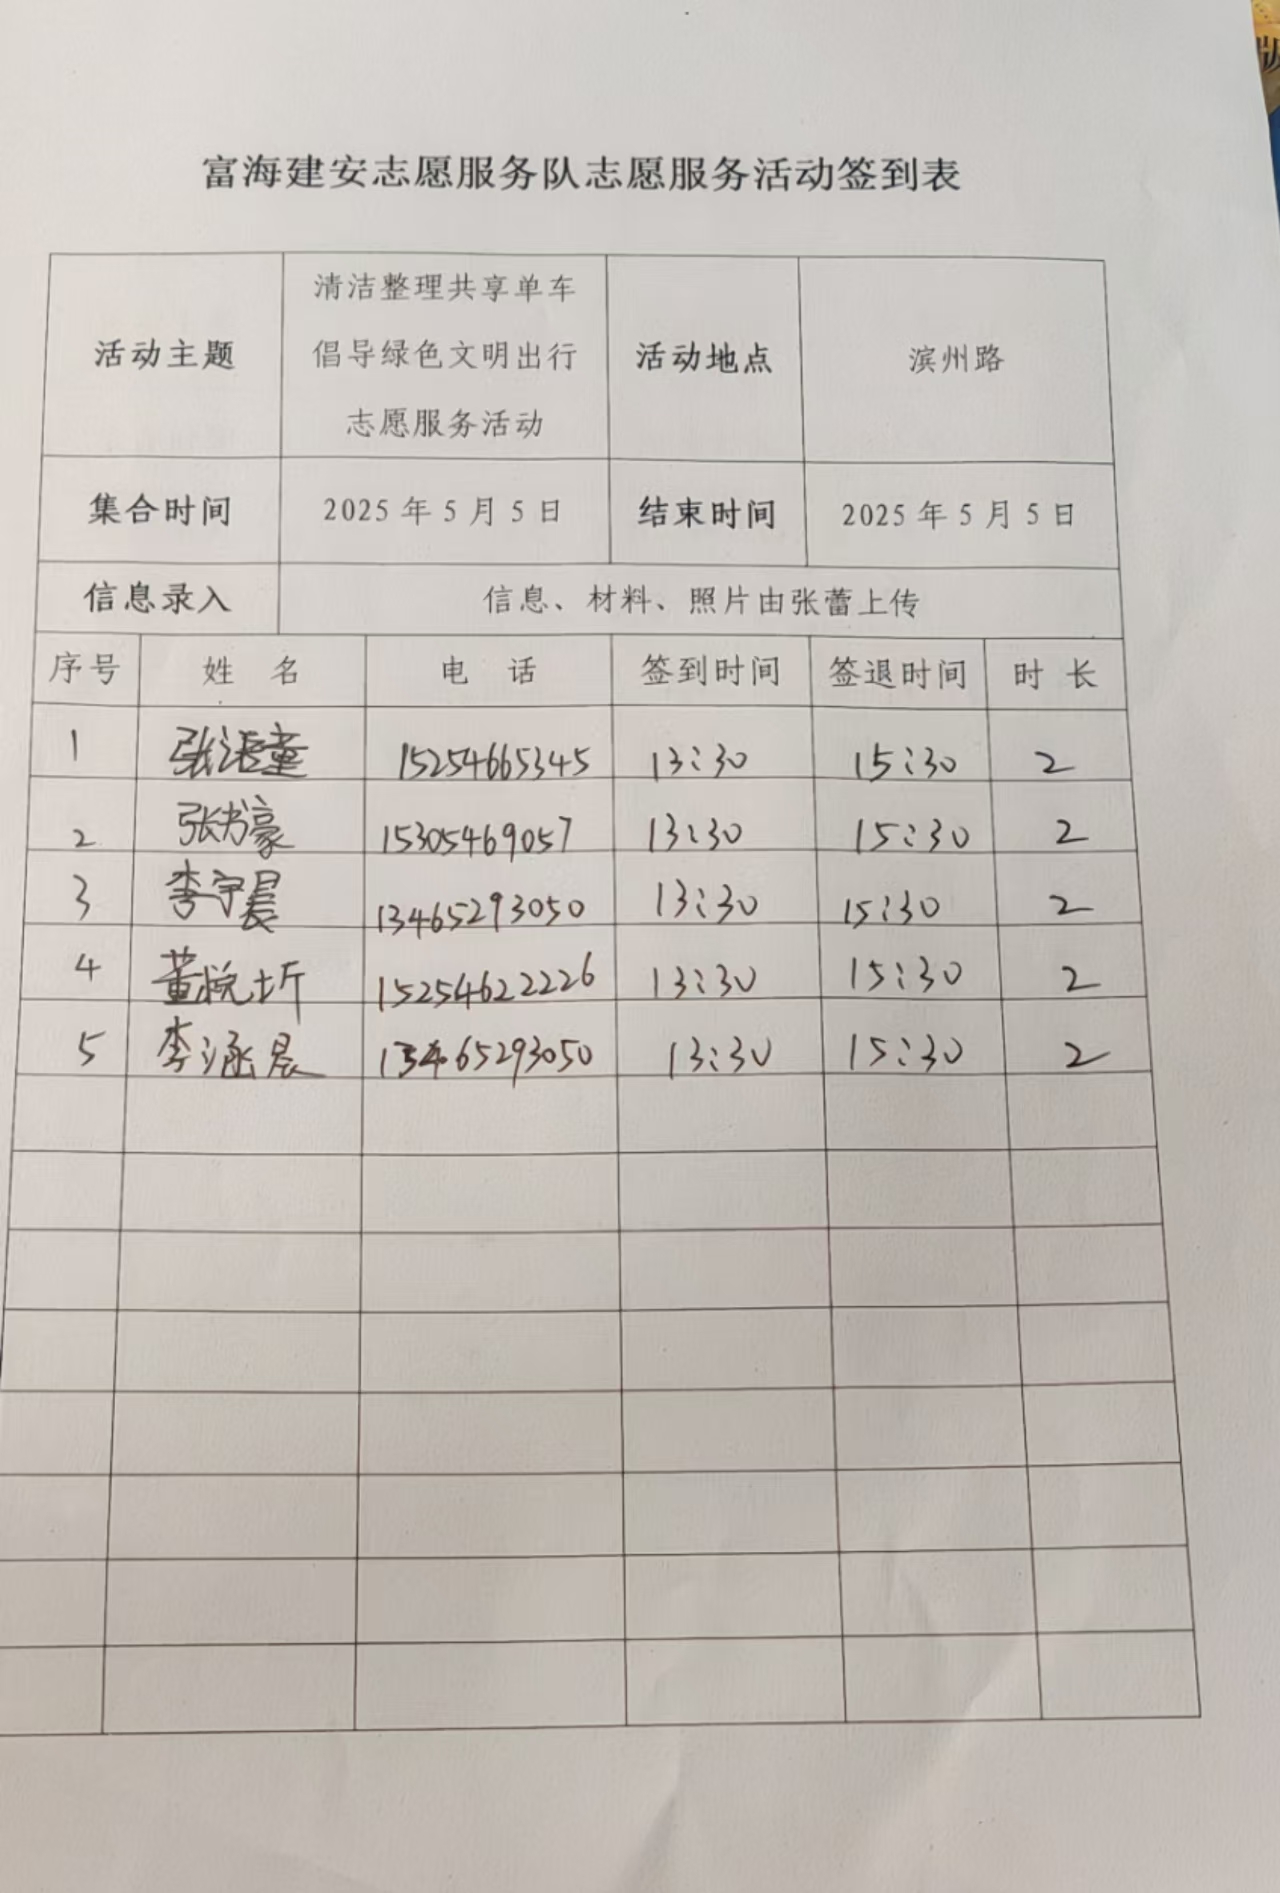 富海建安志愿服务队志愿服务活动签到表
活动主题 清洁整理共享单车 倡导绿色文明出行 志愿服务活动 活动地点 滨州路
集合时间 2025年5月5日 结束时间 2025年5月5日
信息录入 信息、材料、照片由张蕾上传
序号 姓名 电话 签到时间 签退时间 时长
1 张 童 15254665345 13:30 15:30 2
2 张书豪 15305469057 13:30 15:30 2
3 李宇晨 13465293050 13:30 15:30 2
4 董悦圻 15254622226 13:30 15:30 2
5 李涵晨 13465293050 13:30 15:30 2